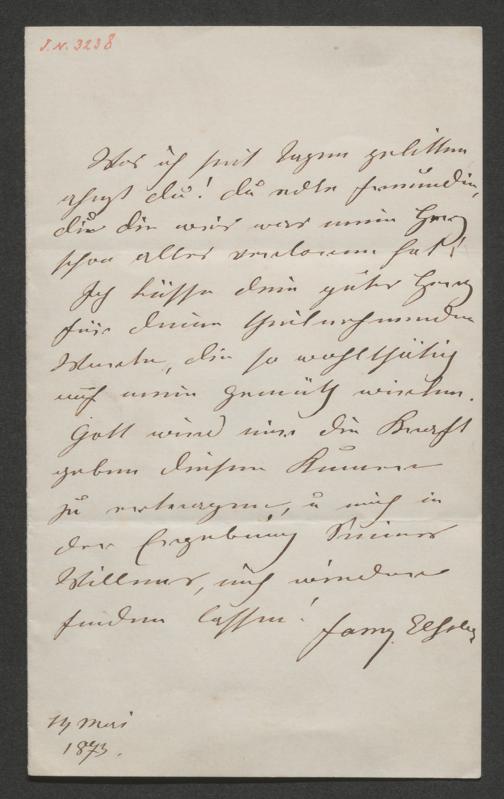 J.N. 3238
Was ich seit Tagen gelitten
ahnst du! du edle Freundin,
die du weis was mein Herz
schon alles verloren hat!
Ich küsse dein gutes Herz
für deine theilnehmenden
Worte, die so wohlthätig
auf mein Gemüth wirken.
Gott wird mir die Kraft
geben diesen Kummer
zu ertragen, u mich in
der Ergebung Seines
Willens, mich wieder
finden lassen!
Fanny Elßler
14 Mai
1873.